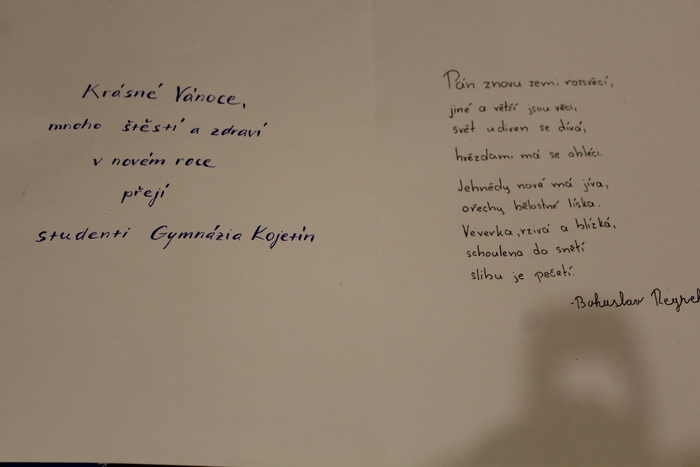 Krásné Vánoce,
mnoho štěstí a zdraví
v novém roce
přejí
studenti Gymnázia Kojetín
Pán znovu zemi rozsvěcí,
jiné a větší jsou věci,
svět udiven se dívá,
hvězdami má se obléci.
Jehnědy nové má jíva,
ořechy bělostné líska.
Veverka, rzivá a blízká,
schoulena do snětí
slibu je pečetí.
-Bohuslav Reynek